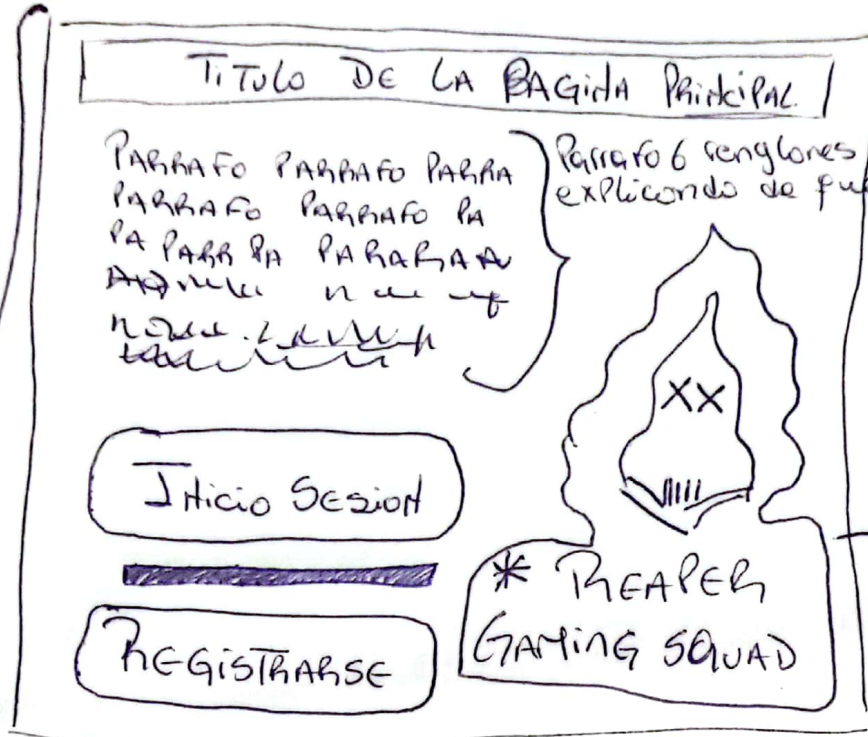 TITULO DE LA PAGINA PRINCIPAL
PARRAFO PARRAFO PARRA
PARRAFO PARRAFO PA
PA PARR PA PARARAAA
Parrafo 6 renglones
explicando de
XX
INICIO SESION
REGISTRARSE
* REAPER
GAMING SQUAD